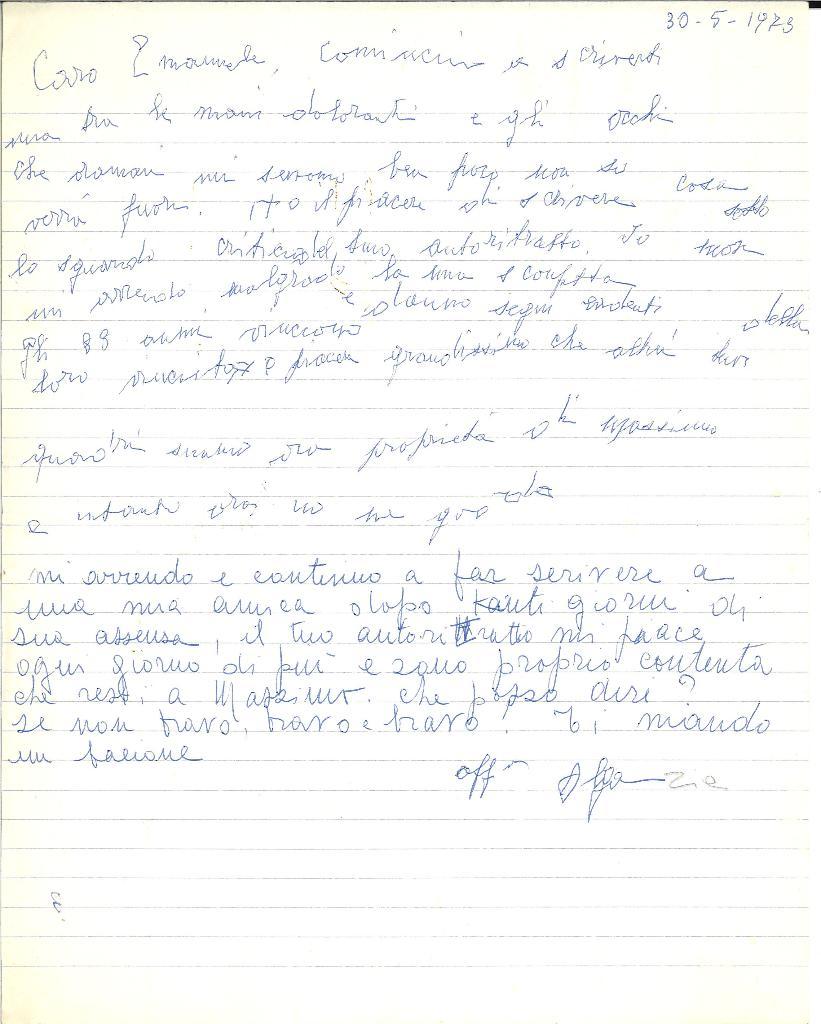 30-5-1973
Caro Emanuele, comincio a scriverti
ma tra le mani doloranti e gli occhi
che oramai mi servono ben poco non so cosa
verrà fuori. Ho il piacere di scivere sotto
lo sguardo critico del tuo autoritratto. Io non
mi arrendo malgrado la mia sconfitta
gli 89 anni vincono e danno segni evidenti della
loro vincita è piacere grandissimo che altri tuoi
quadri siano ora proprietà di Massimo
e intanto ora
mi arrendo e continuo a far scrivere a
una mia amica dopo tanti giorni di
sua assensa, il tuo autorittratto mi piace
ogni giorno di più e sono proprio contenta
che resti a Massimo. che posso dire?
se non bravo, bravo e bravo! Ti mando
un bacione
aff